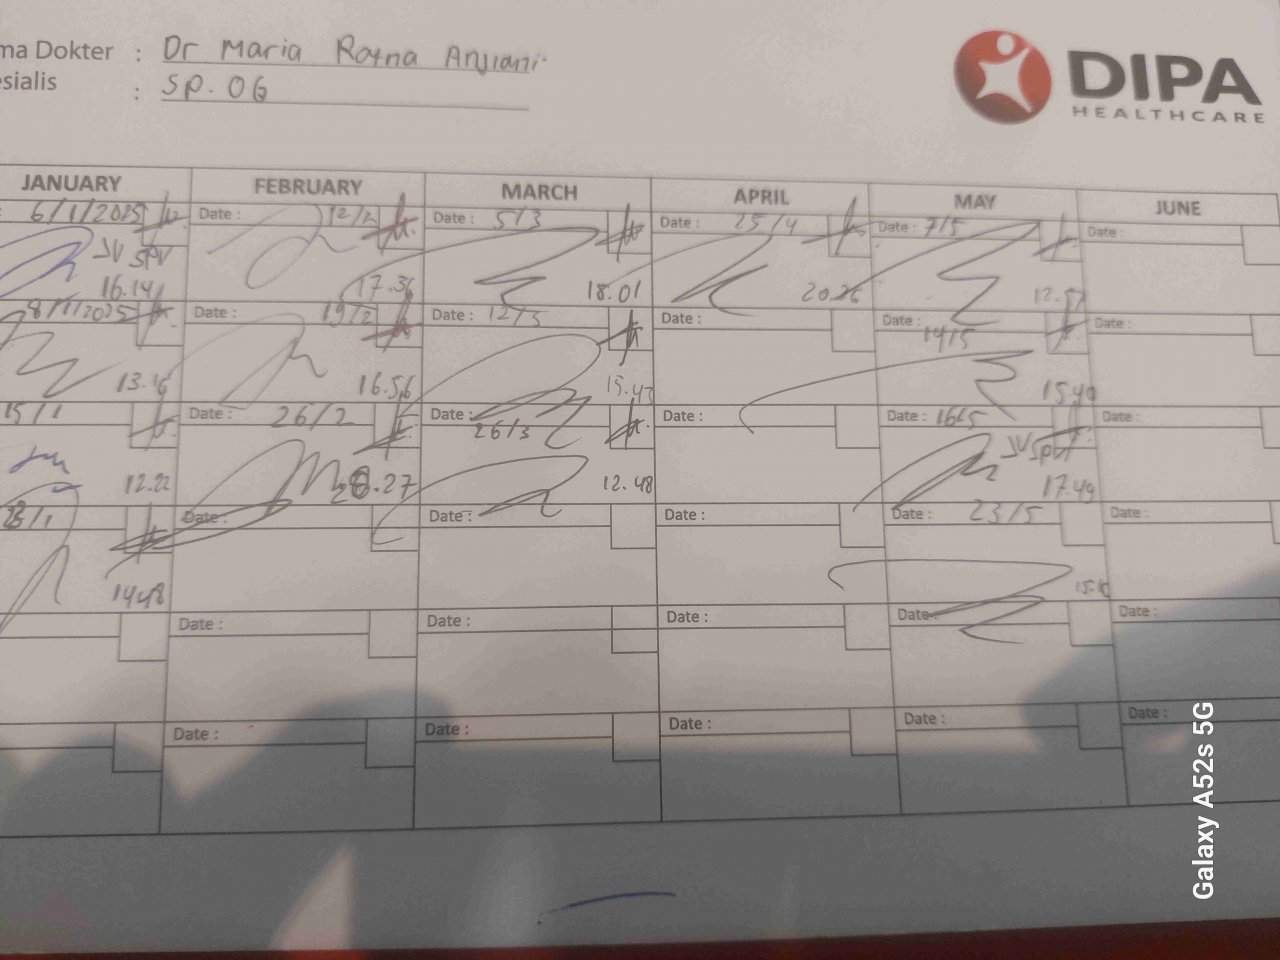 ma Dokter : Dr Maria Ratna Anjiani
esialis : SP. OG
DIPA
HEALTHCARE
JANUARY FEBRUARY MARCH APRIL MAY JUNE
: 6/1/2025 Date : 12/2 Date : 5/3 Date : 25/4 Date : 7/5 Date :
JV SPV
16.14 17.36 18.01 20.26 12.57
8/1/2025 Date : 19/2 Date : 12/3 Date : Date : 14/5 Date :
13.16 16.56 15.43 15.40
15/1 Date : 26/2 Date : 26/3 Date : Date : 16/5 Date :
JV SPV
12.22 .27 12.48 17.49
/1 Date : Date : Date : Date : 23/5 Date :
14.48
Date : Date : Date : Date : Date :
Date : Date : Date : Date : Date :
Galaxy A52s 5G